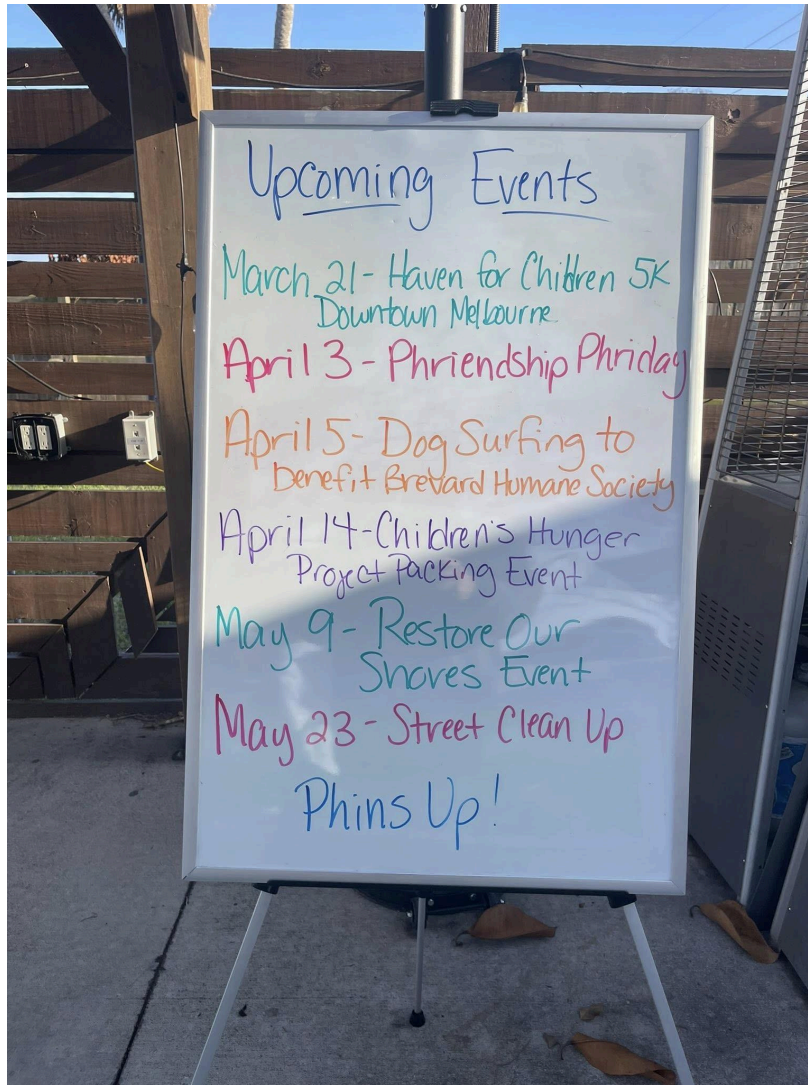 Upcoming Events
March 21- Haven for Children 5K
Downtown Melbourne
April 3 - Phriendship Phriday
April 5- Dog Surfing to
benefit Brevard Humane Society
April 14-Children's Hunger
Project Packing Event
May 9- Restore Our
Shores Event
May 23 - Street Clean Up
Phins Up!